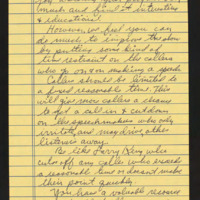 much and find it interesting
& educational.
However, we feel you can
do much to improve the show
by putting some kind of
time restraint on the callers
who go on & on making a speech.
Callers should be limited to
a fixed reasonable time. This
will give more callers a chance
to get a call in & cut down
on the speechmakers who only
irritate and may drive other
listeners away.
Be like Larry King who
cuts off any caller who exceeds
a reasonable time or doesnt make
their point quickly.
You have a valuable resource